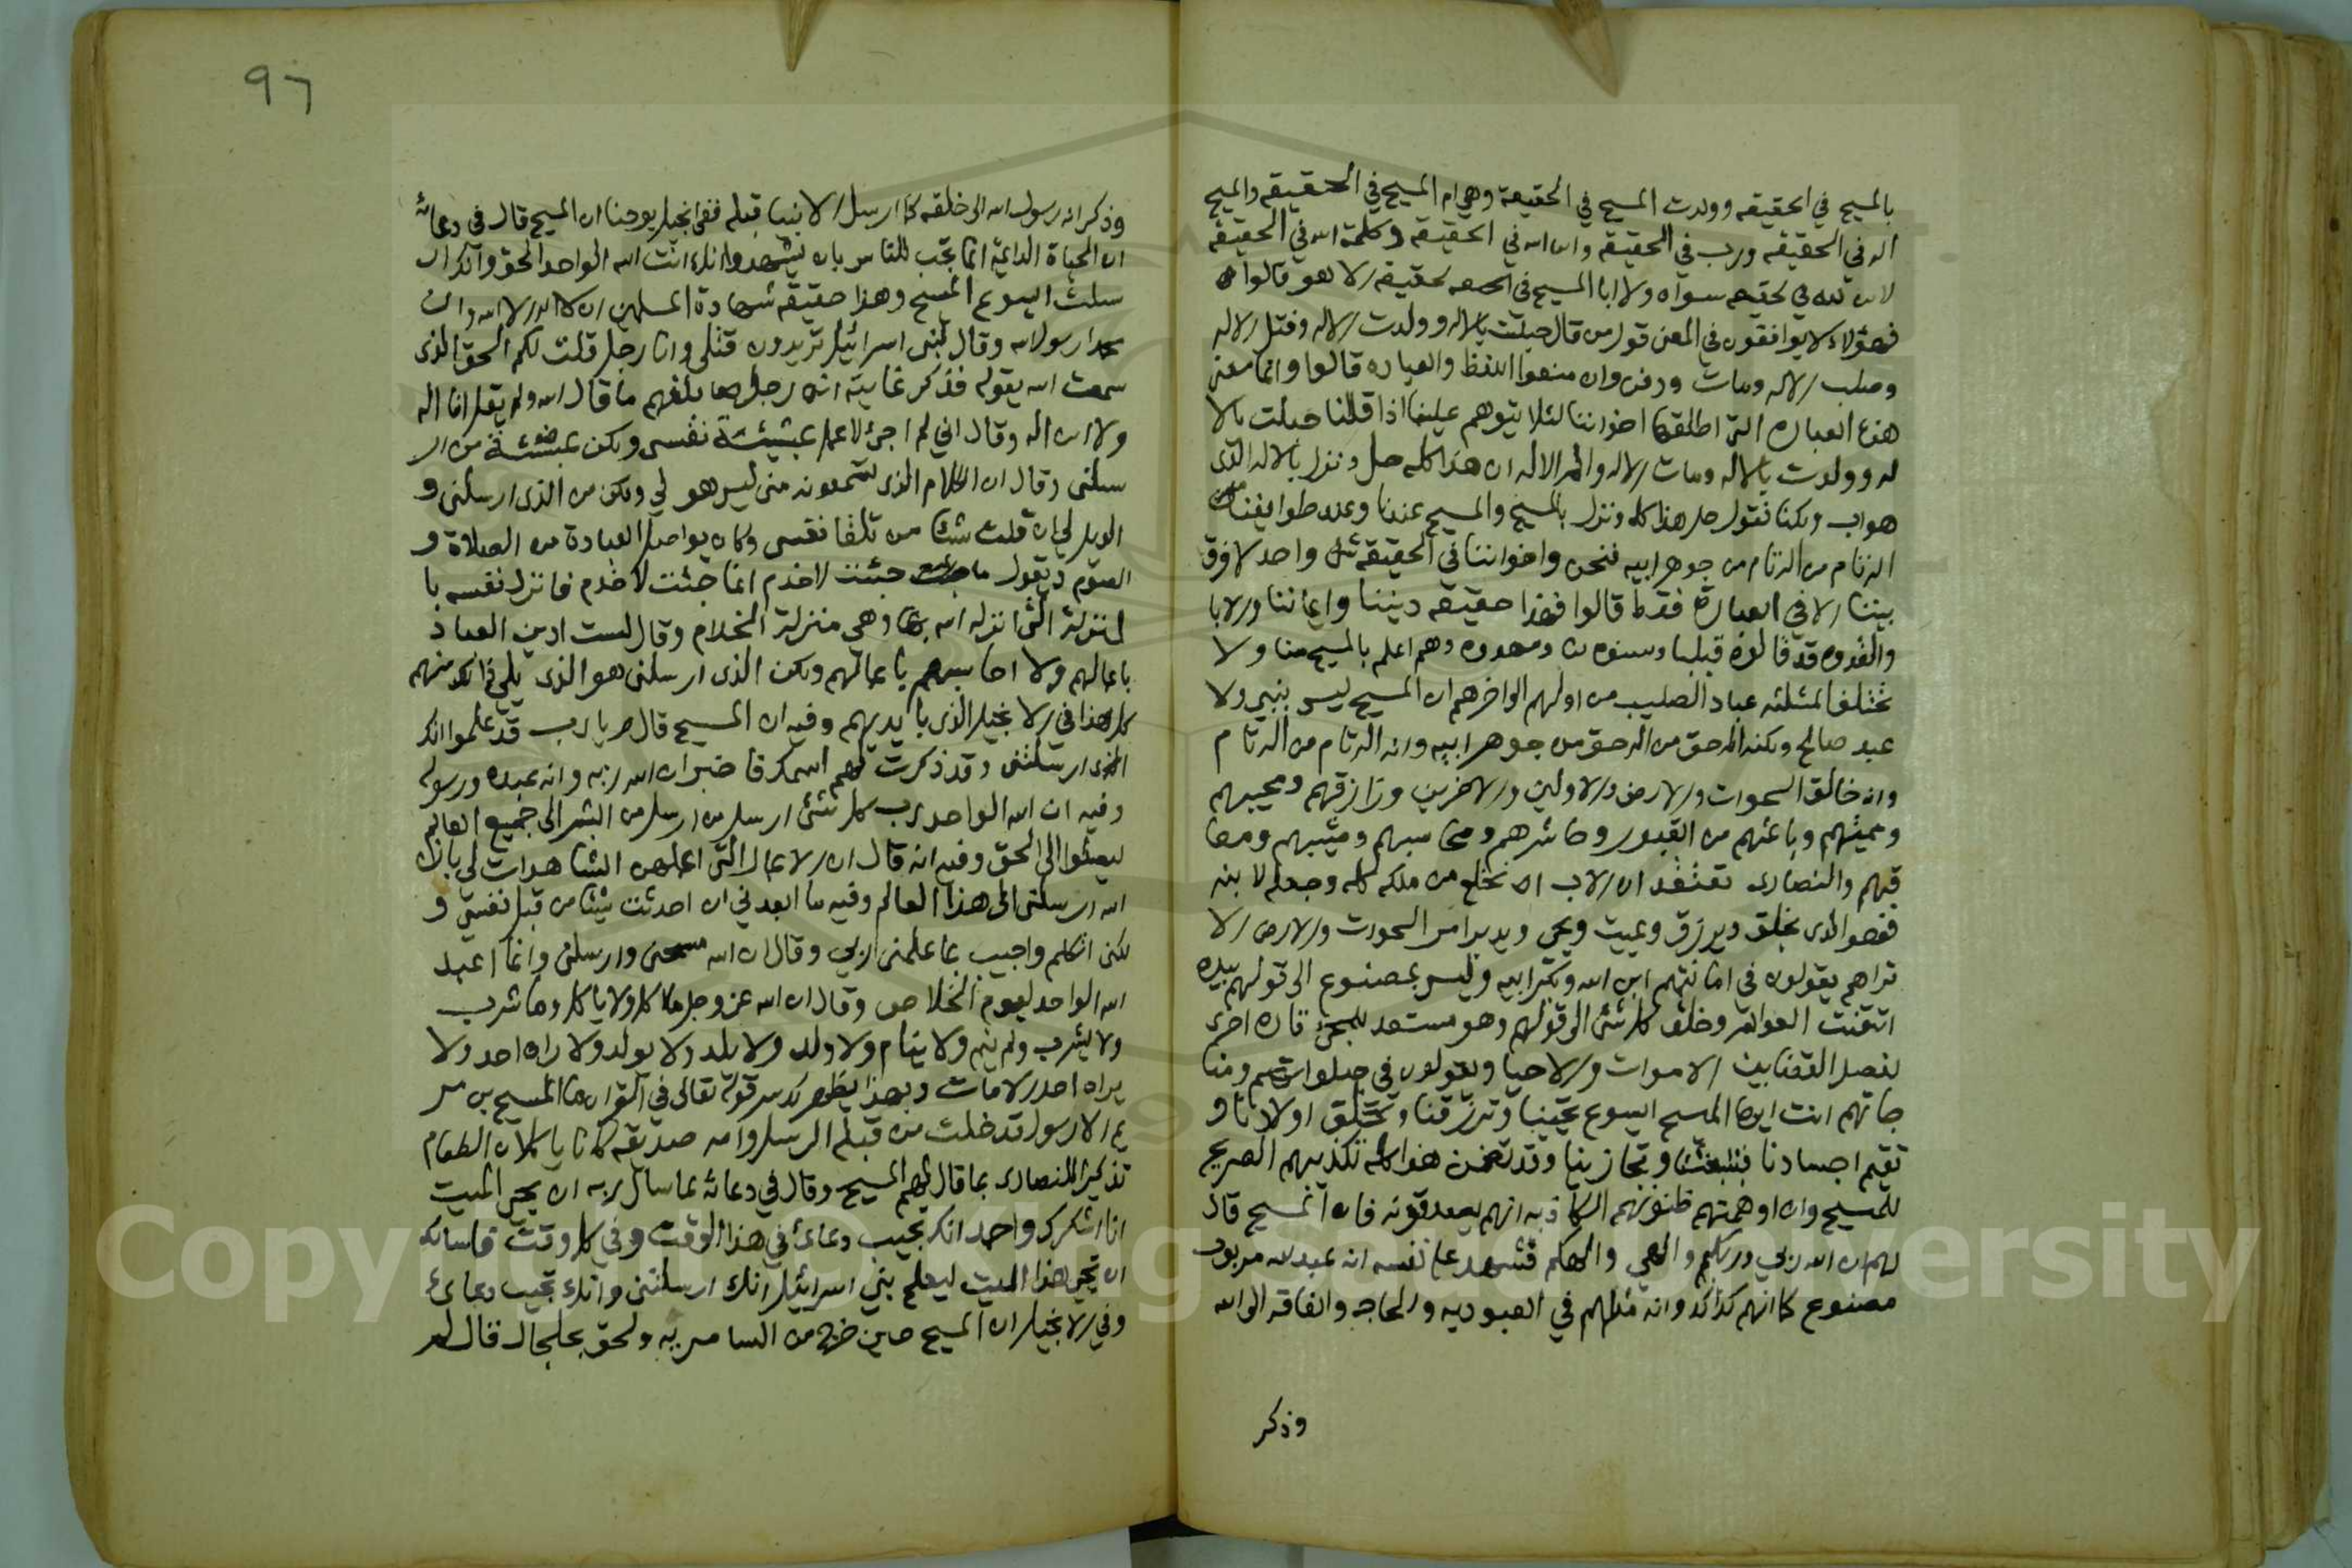 بالمسيح في الحقيقه وولدت المسيح في الحقيقة وهي ام المسيح في الحقيقه والمسيح
اله في الحقيقه ورب في الحقيقه وابن الله في الحقيقه وكلمة الله في الحقيقه
لا ابن لله في الحقيقه سواه ولا ابا للمسيح في الحقيقه الا هو قالوا
فهؤلاء لا يوافقون في المعنى قول من قال حبلت بالاله وولدت الاله وقتل الاله
وصلب الاله ومات ودفن وان منعوا اللفظ والعباره قالوا وانما منعنا
هذه العباره التى اطلقها اخواننا لئلا يتوهم علينا اذا قلنا حبلت بالا
له وولدت بالاله ومات الاله والم الاله ان هذا كله حل ونزل بالاله الذى
هو اب ولكنا نقول حل هذا كله ونزل بالمسيح والمسيح عندنا وعند طوايفنا
اله تام من اله تام من جوهر ابيه فنحن واخواننا في الحقيقة شئ واحد لا فرق
بيننا الا في العبارة فقط قالوا فهذا حقيقه ديننا وايماننا والابا
والقدوه قد قالوه قبلنا وسنوه لنا ومهدوه وهم اعلم بالمسيح منا ولا
تختلف المثلثه عباد الصليب من اولهم الى اخرهم ان المسيح ليس بنبي ولا
عبد صالح ولكنه اله حق من اله حق من جوهر ابيه وانه اله تام من اله تام
وانه خالق السموات والارض والاولين والاخرين ورازقهم ومحييهم
ومميتهم وباعثهم من القبور وحاشرهم ومحاسبهم ومثيبهم ومعا
قبهم والنصارى تعتقد ان الاب انخلع من ملكه كله وجعله لابنه
فهو الذى يخلق ويرزق ويميت ويحي ويدبر امر السموات والارض الا
تراهم يقولون في امانتهم ابن الله وبكر ابيه وليس بمصنوع الى قولهم بيده
اتقنت العوالم وخلق كل شئ الى قولهم وهو مستعد للمجئ تاره اخرى
لفصل القضا بين الاموات والاحيا ويقولون في صلواتهم ومنا
جاتهم انت ايها المسيح اليسوع تحيينا وترزقنا وتخلق اولادنا و
تقيم اجسادنا وتبعثنا وتجازينا وقد تضمن هذا كله تكذيبهم الصريح
للمسيح وان اوهمتهم ظنونهم الكاذبه انهم يصدقونه فان المسيح قال
لهم ان الله ربي وربكم والهي والهكم فشهد على نفسه انه عبد لله مربوب
مصنوع كما انهم كذلك وانه مثلهم في العبوديه والحاجه والفاقه الى الله
وذكر
٩٦
وذكر انه رسول الله الى خلقه كما ارسل الانبيا قبله ففى انجيل يوحنا ان المسيح قال في دعائه
ان الحياة الدائمة انما تجب للناس بان يشهدوا انك انت الله الواحد الحق وانك ار
سلت اليسوع المسيح وهذا حقيقه شهادة المسلمين ان لا اله الا الله وان
محمدا رسول الله وقال لبنى اسرائيل تريدون قتلى وانا رجل قلت لكم الحق الذى
سمعت الله يقوله فذكر غايته انه رجل بلغهم ما قال الله ولم يقل انا اله
ولا ابن اله وقال اني لم اجئ لاعمل بمشيئة نفسى ولكن بمشيئة من ار
سلنى وقال ان الكلام الذى تسمعونه منى ليس هو لي ولكن من الذى ارسلنى و
الويل لي ان قلت شيئا من تلقا نفسى وكان يواصل العبادة من الصلاة و
الصوم ويقول ما جئت لاخدم انما جئت لاخدم فانزل نفسه با
لمنزلة التى انزله الله بها وهي منزلة الخدام وقال لست ادين العباد
باعمالهم ولا احاسبهم باعمالهم ولكن الذى ارسلنى هو الذى يلي ذلك منهم
كل هذا في الانجيل الذى بايديهم وفيه ان المسيح قال يا رب قد علموا انك
ارسلتنى وقد ذكرت لهم اسمك فاخبر ان الله ربه وانه عبده ورسوله
وفيه ان الله الواحد رب كل شئ ارسل من ارسل من البشر الى جميع العالم
ليقبلوا الى الحق وفيه انه قال ان الاعمال التى اعملهن الشاهدات لي بان
الله ارسلنى الى هذا العالم وفيه ما ابعدني ان احدثت شيئا من قبل نفسي و
لكنى اتكلم واجيب بما علمنى ربي وقال ان الله مسحنى وارسلنى وانما اعبد
الله الواحد ليوم الخلاص وقال ان الله عز وجل ما اكل ولا ياكل وما شرب
ولا يشرب ولم ينم ولا ينام ولا ولد ولا يلد ولا يولد ولا راه احد ولا
يراه احد الا مات وبهذا يظهر لك سر قوله تعالى في القران ما المسيح بن مر
يم الا رسول قد خلت من قبله الرسل وامه صديقه كانا ياكلان الطعام
تذكيرا للنصارى بما قال لهم المسيح وقال في دعائه لما سال ربه ان يحيى الميت
انا اشكرك واحمدك انك تجيب دعائى في هذا الوقت وفي كل وقت فاسالك
ان تحيى هذا الميت ليعلم بني اسرائيل انك ارسلتنى وانك تجيب دعائى
وفي الانجيل ان المسيح حين خرج من السامريه ولحق بجلجال قال لم
Copyright © King Saud University